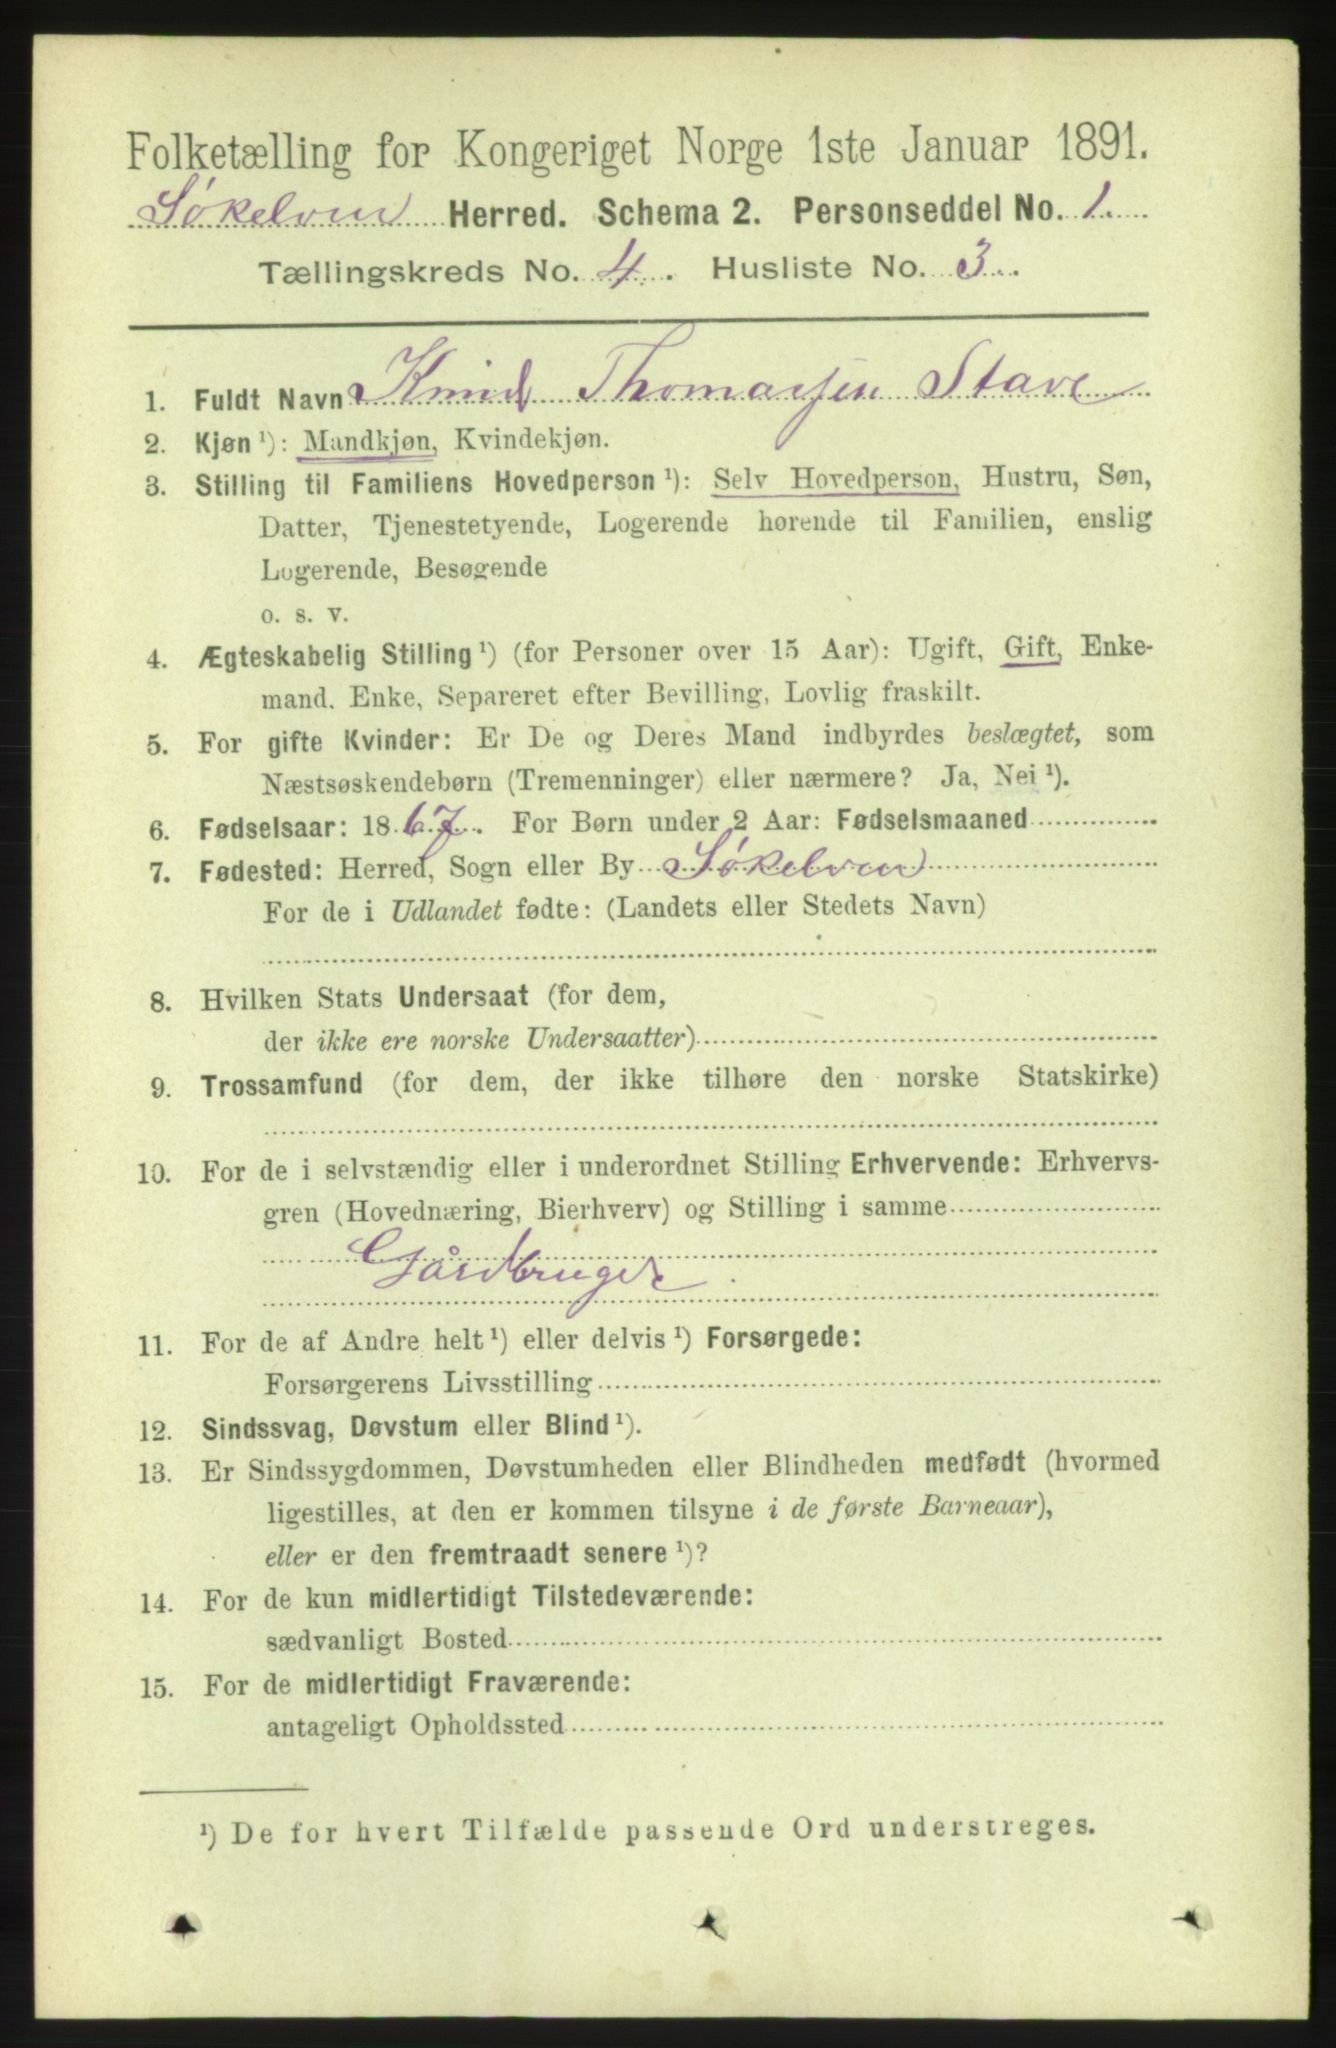 Folketælling for Kongeriget Norge 1ste Januar 1891.
Søkelven Herred. Schema 2. Personseddel No. 1.
Tællingskreds No. 4. Husliste No. 3.
1. Fuldt Navn Knud Thomassen Stave
2. Kjøn ¹): Mandkjøn, Kvindekjøn.
3. Stilling til Familiens Hovedperson ¹): Selv Hovedperson, Hustru, Søn,
Datter, Tjenestetyende, Logerende hørende til Familien, enslig
Logerende, Besøgende
o. s. v.
4. Ægteskabelig Stilling ¹) (for Personer over 15 Aar): Ugift, Gift, Enke-
mand, Enke, Separeret efter Bevilling, Lovlig fraskilt.
5. For gifte Kvinder: Er De og Deres Mand indbyrdes beslægtet, som
Næstsøskendebørn (Tremenninger) eller nærmere? Ja, Nei ¹).
6. Fødselsaar: 1867. For Børn under 2 Aar: Fødselsmaaned
7. Fødested: Herred, Sogn eller By Søkelven
For de i Udlandet fødte: (Landets eller Stedets Navn)
8. Hvilken Stats Undersaat (for dem,
der ikke ere norske Undersaatter)
9. Trossamfund (for dem, der ikke tilhøre den norske Statskirke)
10. For de i selvstændig eller i underordnet Stilling Erhvervende: Erhvervs-
gren (Hovednæring, Bierhverv) og Stilling i samme
Gårdbruger
11. For de af Andre helt ¹) eller delvis ¹) Forsørgede:
Forsørgerens Livsstilling
12. Sindssvag, Døvstum eller Blind ¹).
13. Er Sindssygdommen, Døvstumheden eller Blindheden medfødt (hvormed
ligestilles, at den er kommen tilsyne i de første Barneaar),
eller er den fremtraadt senere ¹)?
14. For de kun midlertidigt Tilstedeværende:
sædvanligt Bosted
15. For de midlertidigt Fraværende:
antageligt Opholdssted
¹) De for hvert Tilfælde passende Ord understreges.